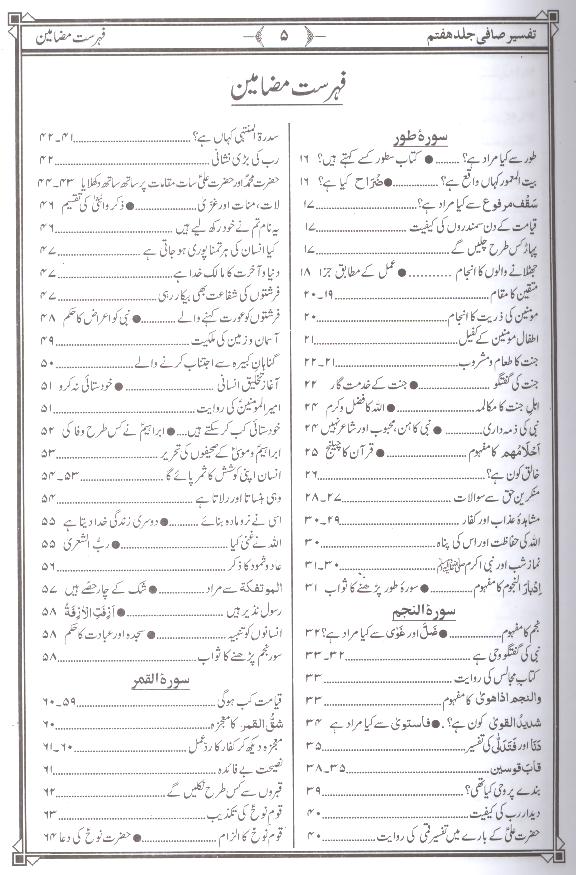 تفسیر صافی جلد ہفتم
۵
فہرست مضامین
فہرست مضامین
سورۂ طور
طور سے کیا مراد ہے؟ ......... ● کتاب مسطور کسے کہتے ہیں؟ ۱۶
بیت المعمور کہاں واقع ہے؟ ......... ● ضُرَاح کیا ہے؟ ۱۶
سَقْف مرفوع سے کیا مراد ہے؟ ......... ۱۷
قیامت کے دن سمندروں کی کیفیت ......... ۱۷
پہاڑ کس طرح چلیں گے ......... ۱۷
جھٹلانے والوں کا انجام ......... ● عمل کے مطابق جزا ۱۸
متقین کا مقام ......... ۱۹۔۲۰
مومنین کی ذریت کا انجام ......... ۲۰
اطفال مومنین کے کفیل ......... ۲۱
جنت کا طعام و مشروب ......... ۲۱۔۲۲
جنت کی گفتگو ......... ● جنت کے خدمت گار ۲۲
اہلِ جنت کا مکالمہ ......... ● اللہ کا فضل و کرم ۲۴
نبی کی ذمہ داری ......... ● نبی کاہن، مجنون اور شاعر نہیں ۲۴
اَحْلَامُهم کا مفہوم ......... ● قرآن کا چیلنج ۲۵
خالق کون ہے؟ ......... ۲۶
منکرین حق سے سوالات ......... ۲۷۔۲۸
مشاہدۂ عذاب اور کفار ......... ۲۹۔۳۰
اللہ کی حفاظت اور اس کی پناہ ......... ۳۰
نماز شب اور نبی اکرم ﷺ ......... ۳۰۔۳۱
اِدْبَارَ النجوم کا مفہوم ......... ● سورۂ طور پڑھنے کا ثواب ۳۱
سورۃ النجم
نجم کا مفہوم ......... ● ضَلَّ اور غَوٰی سے کیا مراد ہے؟ ۳۲
نبی کی گفتگو وحی ہے ......... ۳۲۔۳۳
کتاب مجالس کی روایت ......... ۳۳
والنجم اذاهوىٰ کا مفہوم ......... ۳۳
شدیدُ القویٰ کون ہے؟ ● فاستویٰ سے کیا مراد ہے ۳۴
دَنَا اور فَتَدَلّٰی کی تفسیر ......... ۳۵
قابَ قوسین ......... ۳۵۔۳۸
بندے پر وحی کیا تھی؟ ......... ۳۹
دیدار رب کی کیفیت ......... ۴۰
حضرت علیؑ کے بارے میں تفسیر قمی کی روایت ......... ۴۰
سدرۃ المنتہیٰ کہاں ہے؟ ......... ۴۱۔۴۲
رب کی بڑی نشانی ......... ۴۲
حضرت محمدؐ اور حضرت علیؑ سات مقامات پر ساتھ ساتھ دکھلایا ۴۳۔۴۴
لات، منات اور عزّیٰ ......... ● ذکر و انثیٰ کی تقسیم ۴۶
یہ نام تم نے خود رکھ لیے ہیں ......... ۴۶
کیا انسان کی ہر تمنا پوری ہو جاتی ہے ......... ۴۷
دنیا و آخرت کا مالک خدا ہے ......... ۴۷
فرشتوں کی شفاعت بھی بیکار رہی ......... ۴۷
فرشتوں کو عورت کہنے والے ......... ● نبی کو اعراض کا حکم ۴۸
آسمان و زمین کی ملکیت ......... ۴۹
گناہانِ کبیرہ سے اجتناب کرنے والے ......... ۵۰
آغاز تخلیق انسانی ......... ● خودستائی نہ کرو ۵۱
امیر المومنینؑ کی روایت ......... ۵۱
خودستائی کب کر سکتے ہیں ......... ● ابراہیمؑ نے کس طرح وفا کی ۵۲
ابراہیمؑ و موسیٰؑ کے صحیفوں کی تحریر ......... ۵۳
انسان اپنی کوشش کا ثمر پائے گا ......... ۵۳۔۵۴
وہی ہنساتا اور رلاتا ہے ......... ۵۴
اسی نے نر و مادہ بنائے ......... ● دوسری زندگی خدا دیتا ہے ۵۵
اللہ نے غنی کیا ......... ● ربُّ الشعریٰ ۵۵
عاد و ثمود کا ذکر ......... ۵۶
الموتفکة سے مراد ......... ● شک کے چار حصے ہیں ۵۷
رسول نذیر ہیں ......... ● اَزِفَتِ الْاٰزِفَةُ ۵۸
انسانوں کو تنبیہ ......... ● سجدہ اور عبادت کا حکم ۵۸
سورۂ نجم پڑھنے کا ثواب ......... ۵۸
سورۃ القمر
قیامت کب ہوگی ......... ۵۹۔۶۰
شقُّ القمر کا معجزہ ......... ۶۰
معجزہ دیکھ کر کفار کا ردّ عمل ......... ۶۰۔۶۱
نصیحت بے فائدہ ......... ۶۱
قبروں سے کس طرح نکلیں گے ......... ۶۲
قوم نوحؑ کی تکذیب ......... ۶۳
قوم نوحؑ کا الزام ......... ● حضرت نوحؑ کی دعا ۶۴